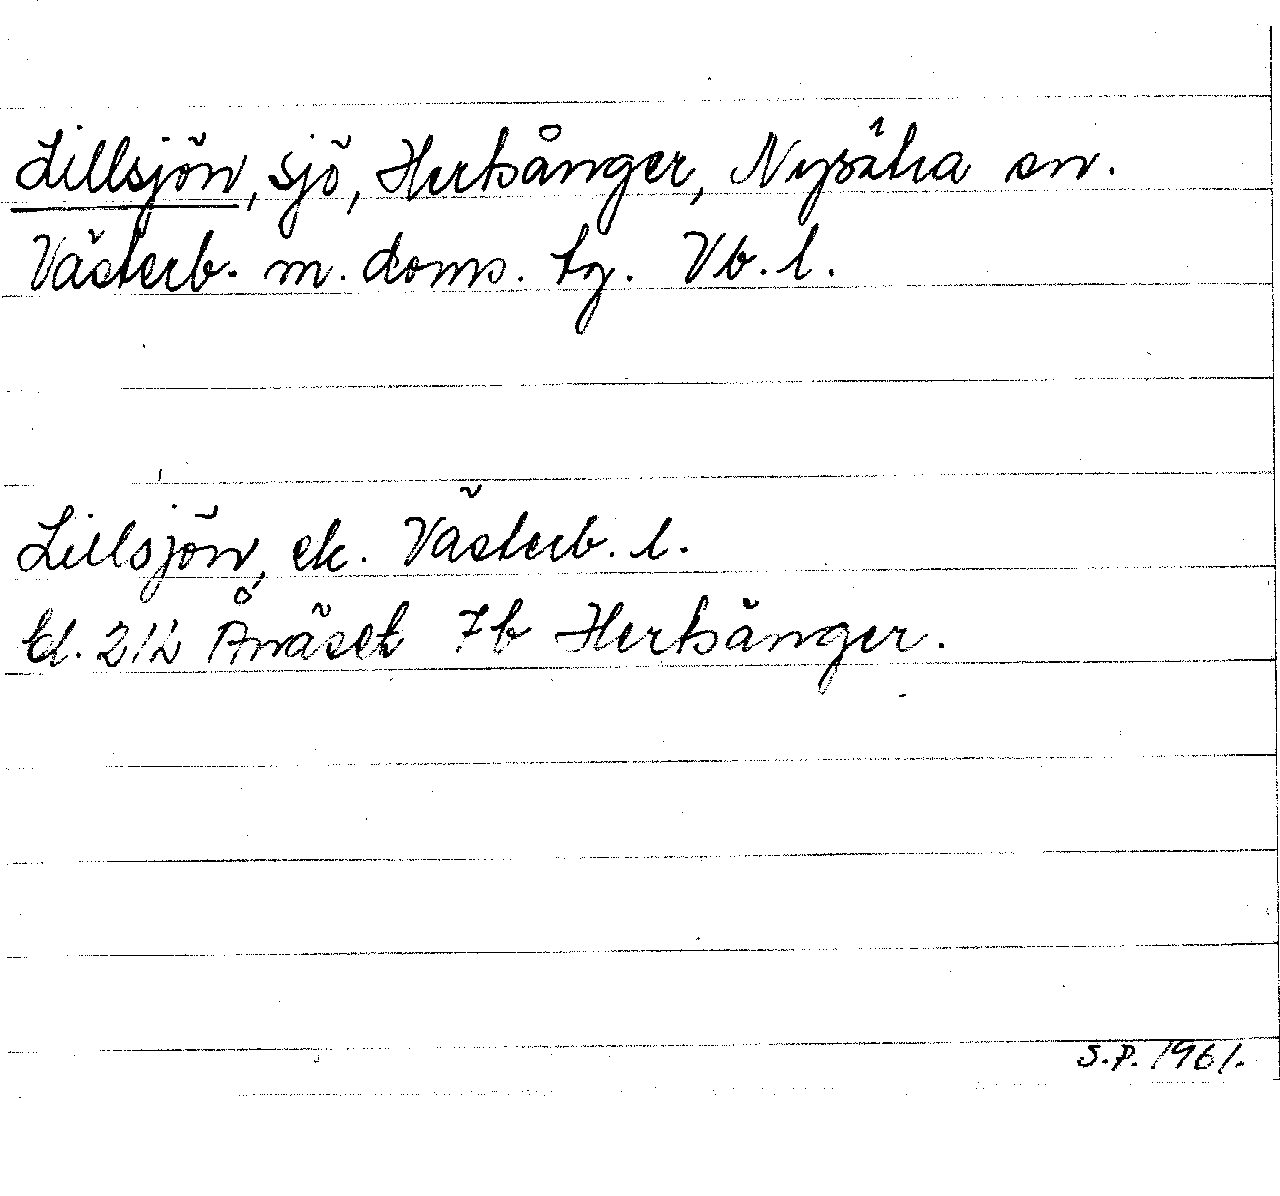 Lillsjön, sjö, Hertsånger, Nysätra sn.
Västerb. m. doms. tg. Vb. l.
Lillsjön, ek. Västerb. l.
bl. 21L Ånäset 7b Hertsånger.
S.P. 1961.